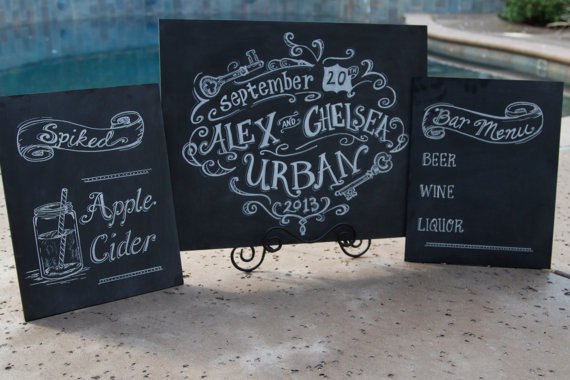 Spiked
Apple
Cider
september 20TH
ALEX AND CHELSEA
URBAN
2013
Bar Menu
BEER
WINE
LIQUOR